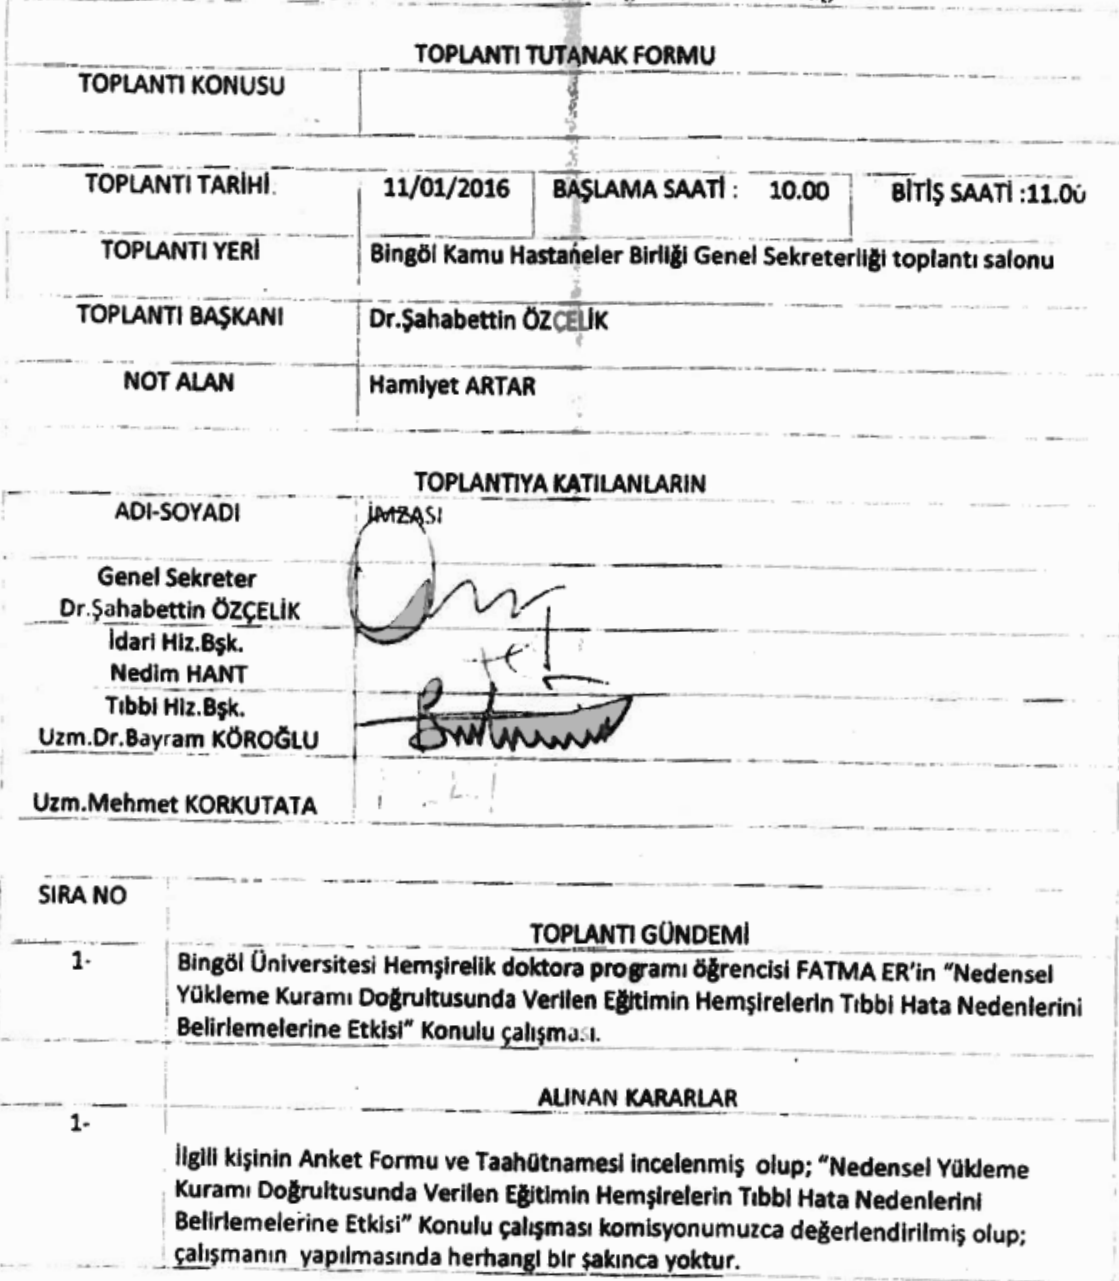 TOPLANTI TUTANAK FORMU
TOPLANTI KONUSU
TOPLANTI TARİHİ 11/01/2016 BAŞLAMA SAATİ : 10.00 BİTİŞ SAATİ :11.00
TOPLANTI YERİ Bingöl Kamu Hastaneler Birliği Genel Sekreterliği toplantı salonu
TOPLANTI BAŞKANI Dr.Şahabettin ÖZÇELİK
NOT ALAN Hamiyet ARTAR
TOPLANTIYA KATILANLARIN
ADI-SOYADI İMZASI
Genel Sekreter
Dr.Şahabettin ÖZÇELİK
İdari Hiz.Bşk.
Nedim HANT
Tıbbi Hiz.Bşk.
Uzm.Dr.Bayram KÖROĞLU
Uzm.Mehmet KORKUTATA
SIRA NO
TOPLANTI GÜNDEMİ
1- Bingöl Üniversitesi Hemşirelik doktora programı öğrencisi FATMA ER’in “Nedensel
Yükleme Kuramı Doğrultusunda Verilen Eğitimin Hemşirelerin Tıbbi Hata Nedenlerini
Belirlemelerine Etkisi” Konulu çalışması.
ALINAN KARARLAR
1-
İlgili kişinin Anket Formu ve Taahütnamesi incelenmiş olup; “Nedensel Yükleme
Kuramı Doğrultusunda Verilen Eğitimin Hemşirelerin Tıbbi Hata Nedenlerini
Belirlemelerine Etkisi” Konulu çalışması komisyonumuzca değerlendirilmiş olup;
çalışmanın yapılmasında herhangi bir şakınca yoktur.